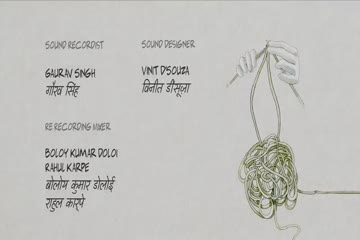 SOUND RECORDIST
GAURAV SINGH
गौरव सिंह
SOUND DESIGNER
VINIT D'SOUZA
विनीत डीसूज़ा
RE RECORDING MIXER
BOLOY KUMAR DOLOI
RAHUL KARPE
बोलोय कुमार डोलोई
राहुल कार्पे